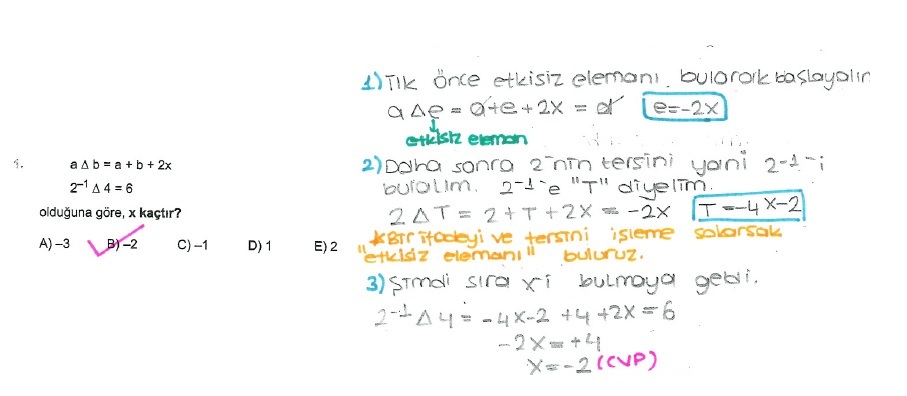 9.
a Δ b = a + b + 2x
2⁻¹ Δ 4 = 6
olduğuna göre, x kaçtır?
A) –3 B) –2 C) –1 D) 1 E) 2
1) İlk önce etkisiz elemanı bularak başlayalım
a Δ e = a + e + 2x = a e = -2x
etkisiz eleman
2) Daha sonra 2'nin tersini yani 2⁻¹-i
bulalım. 2⁻¹'e "T" diyelim.
2 Δ T = 2 + T + 2x = -2x T = -4x-2
*Bir ifadeyi ve tersini işleme sokarsak
"etkisiz elemanı" buluruz.
3) Şimdi sıra x'i bulmaya geldi.
2⁻¹ Δ 4 = -4x-2 +4 +2x = 6
-2x = +4
x = -2 (CVP)